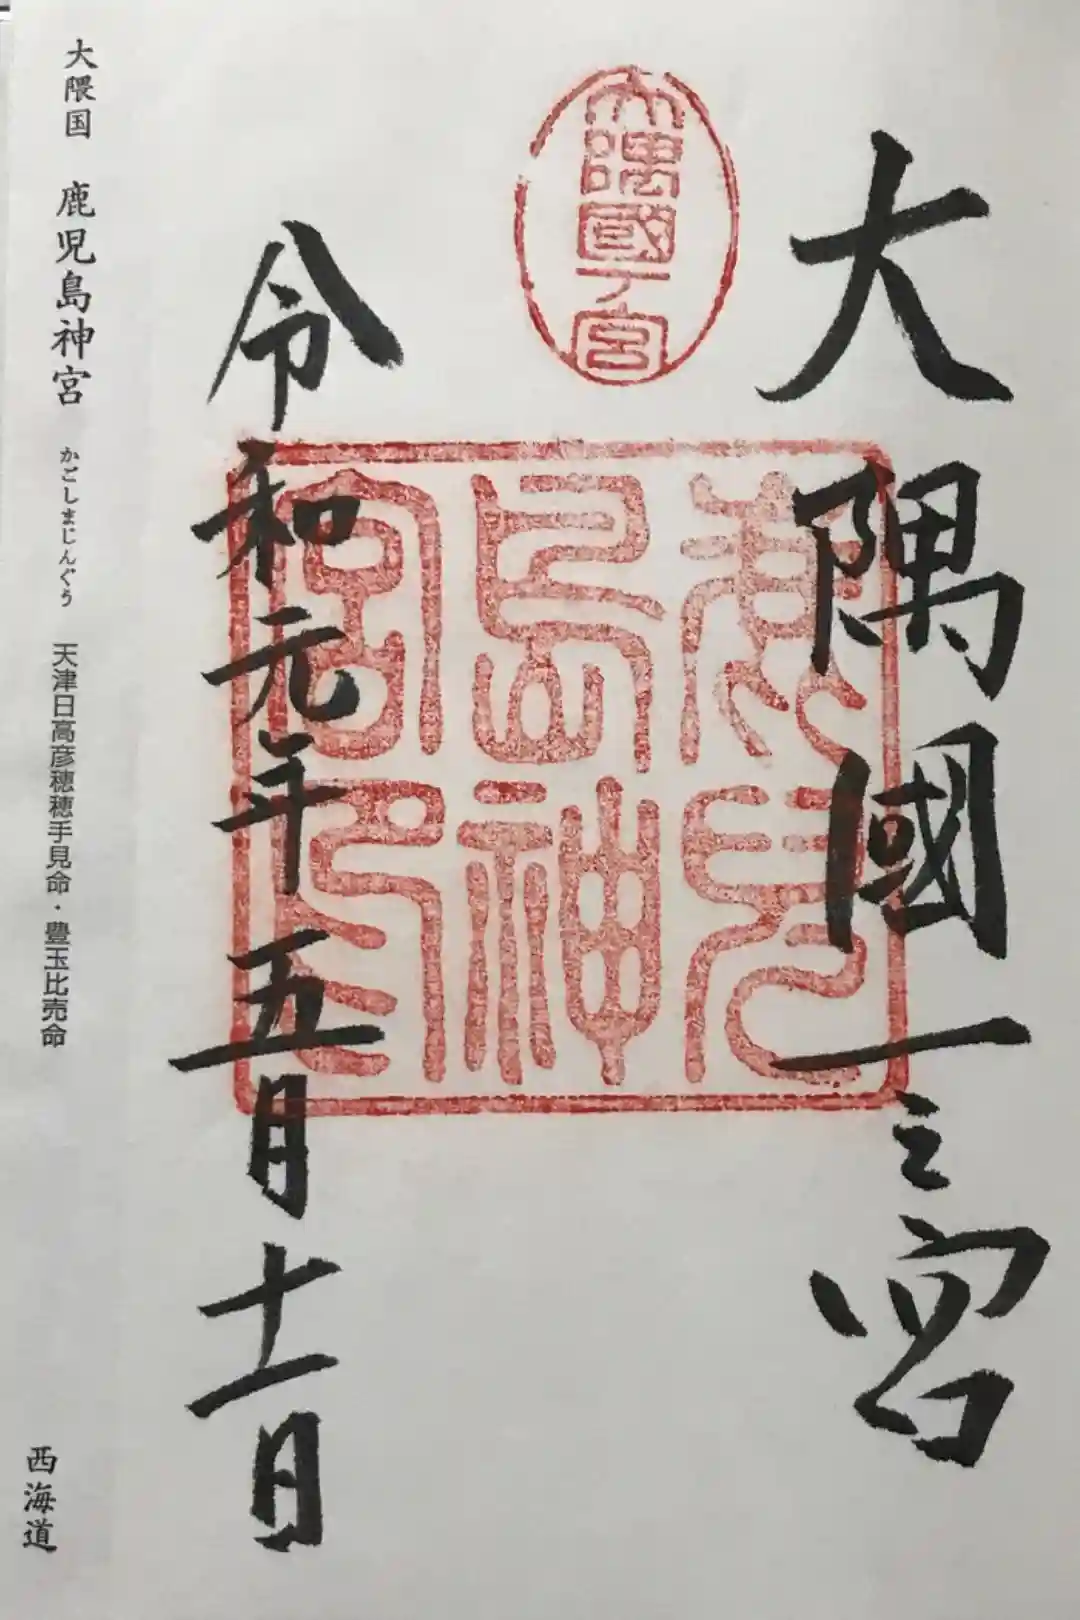 大隅國一之宮
大隅國一宮
鹿兒島神宮印
令和元年五月十一日
大隈国 鹿児島神宮 かごしまじんぐう 天津日高彦穂穂手見命・豊玉比売命
西海道